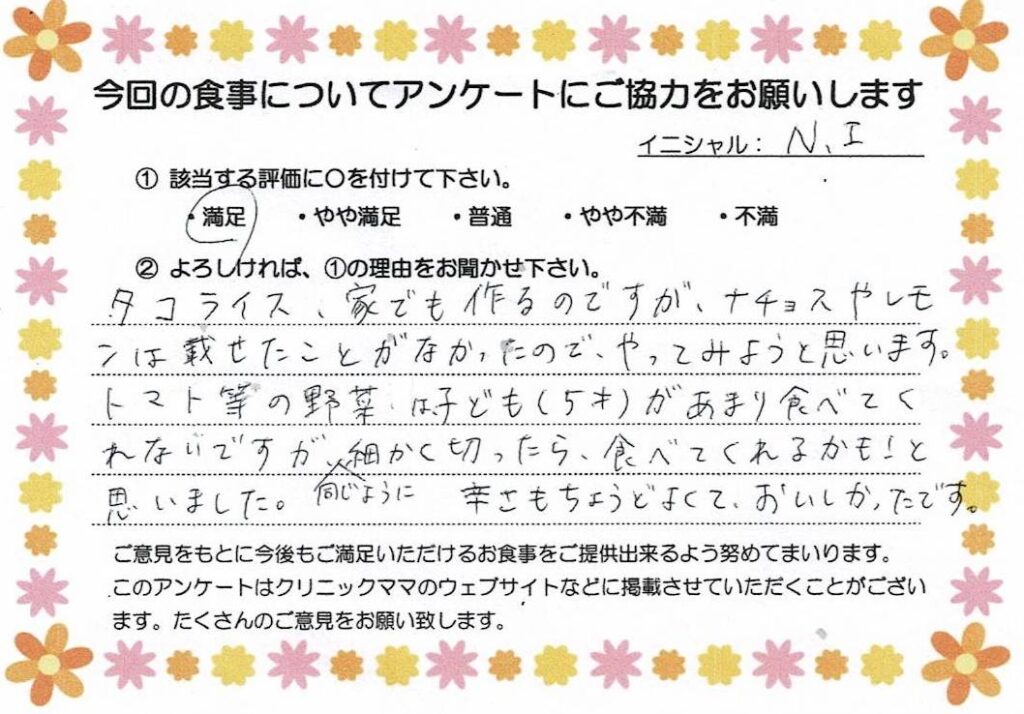 今回の食事についてアンケートにご協力をお願いします
イニシャル： N、I
① 該当する評価に〇を付けて下さい。
・満足 ・やや満足 ・普通 ・やや不満 ・不満
② よろしければ、①の理由をお聞かせ下さい。
タコライス、家でも作るのですが、ナチョスやレモ
ンは載せたことがなかったので、やってみようと思います。
トマト等の野菜は子ども(5才)があまり食べてく
れないですが、細かく切ったら、食べてくれるかも!と
思いました。同じように 辛さもちょうどよくて、おいしかったです。
ご意見をもとに今後もご満足いただけるお食事をご提供出来るよう努めてまいります。
このアンケートはクリニックママのウェブサイトなどに掲載させていただくことがござい
ます。たくさんのご意見をお願い致します。